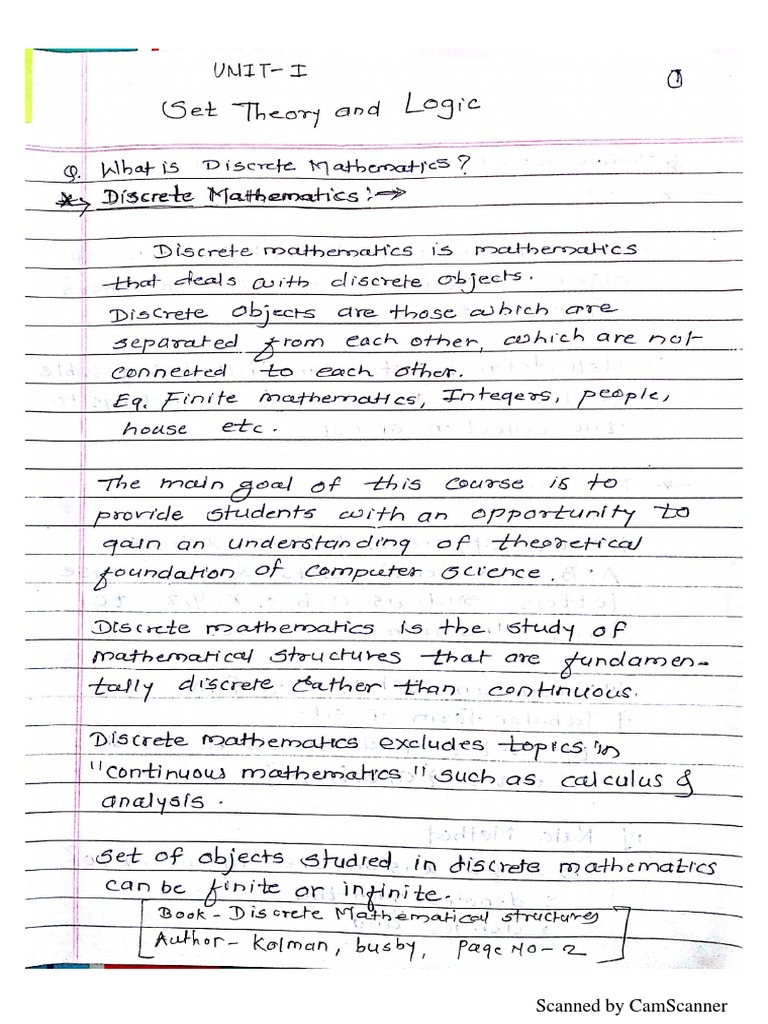 UNIT-I
1
Set Theory and Logic
Q. What is Discrete Mathematics?
* Discrete Mathematics :→
Discrete mathematics is mathematics
that deals with discrete objects.
Discrete objects are those which are
separated from each other, which are not
connected to each other.
Eg. Finite mathematics, Integers, people,
house etc.
The main goal of this course is to
provide students with an opportunity to
gain an understanding of theoretical
foundation of computer science.
Discrete mathematics is the study of
mathematical structures that are fundamen-
tally discrete rather than continuous.
Discrete mathematics excludes topics in
"continuous mathematics" such as calculus &
analysis.
Set of objects studied in discrete mathematics
can be finite or infinite.
[Book - Discrete Mathematical structures
Author - Kolman, busby, Page NO - 2]
Scanned by CamScanner